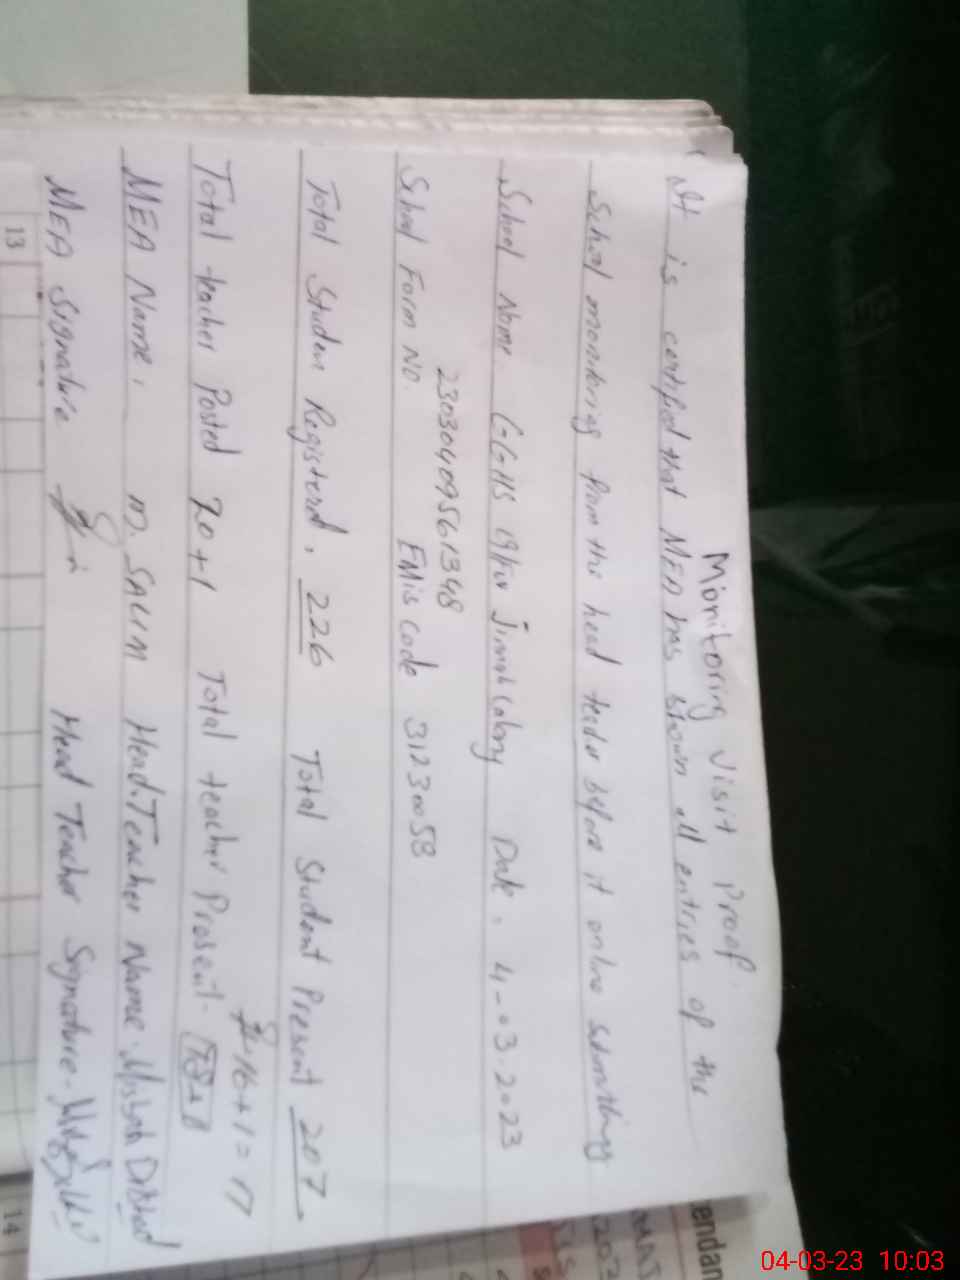 Mionitoring Visit Proof.
It is certified that MEA has shown all entries of the
School monitering from the head teader before it online submitting
School Name. GGHS Jinnah Colony Date. 4-03.2023
23030409561348
School Form No. EMis code 31230058
Total Studen Registered. 226 Total Student Present 207
16+1=17
Total teacher Posted 20+1 Total teacher Present-
MEA Name. M. SALIM Head.Teacher Name. Misbah
MEA Signature Head Teacher Signature-
13
14
endan
04-03-23 10:03